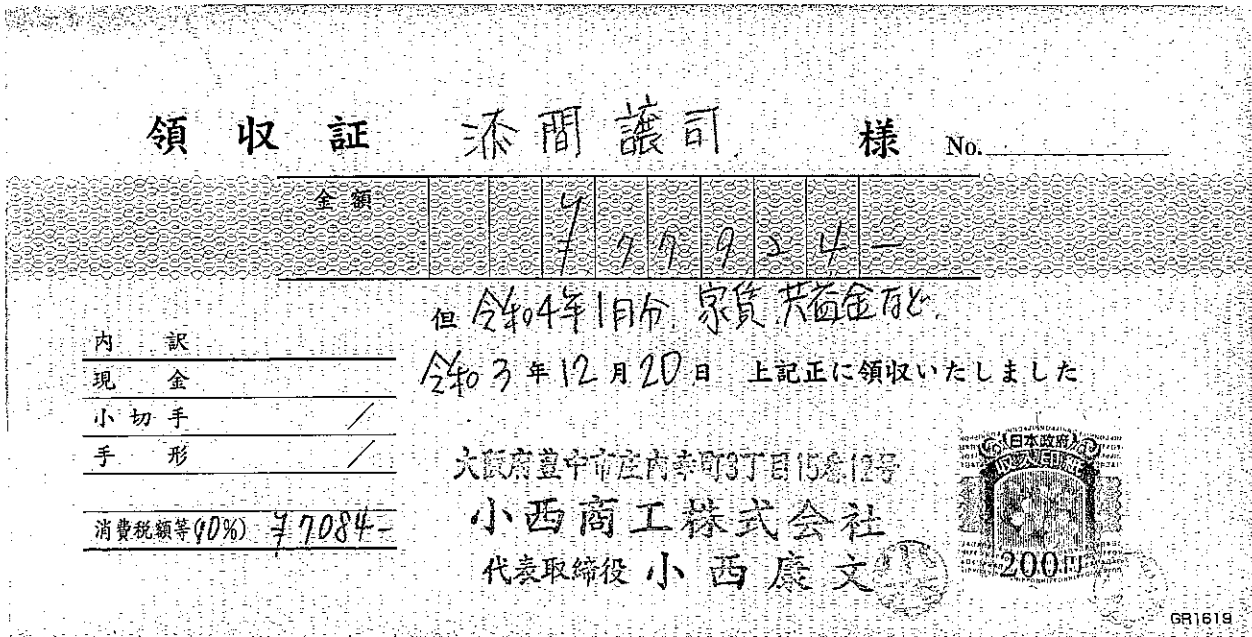 領収証 添間譲司 様 No.
金額 ¥77924-
但 令和4年1月分 家賃 共益金など
内訳
令和3年12月20日 上記正に領収いたしました
現金
小切手 /
手形 /
消費税額等(10%) ¥7084-
大阪府豊中市庄内幸町3丁目15番12号
小西商工株式会社
代表取締役 小西康文
日本政府
収入印紙
200円
GR1619